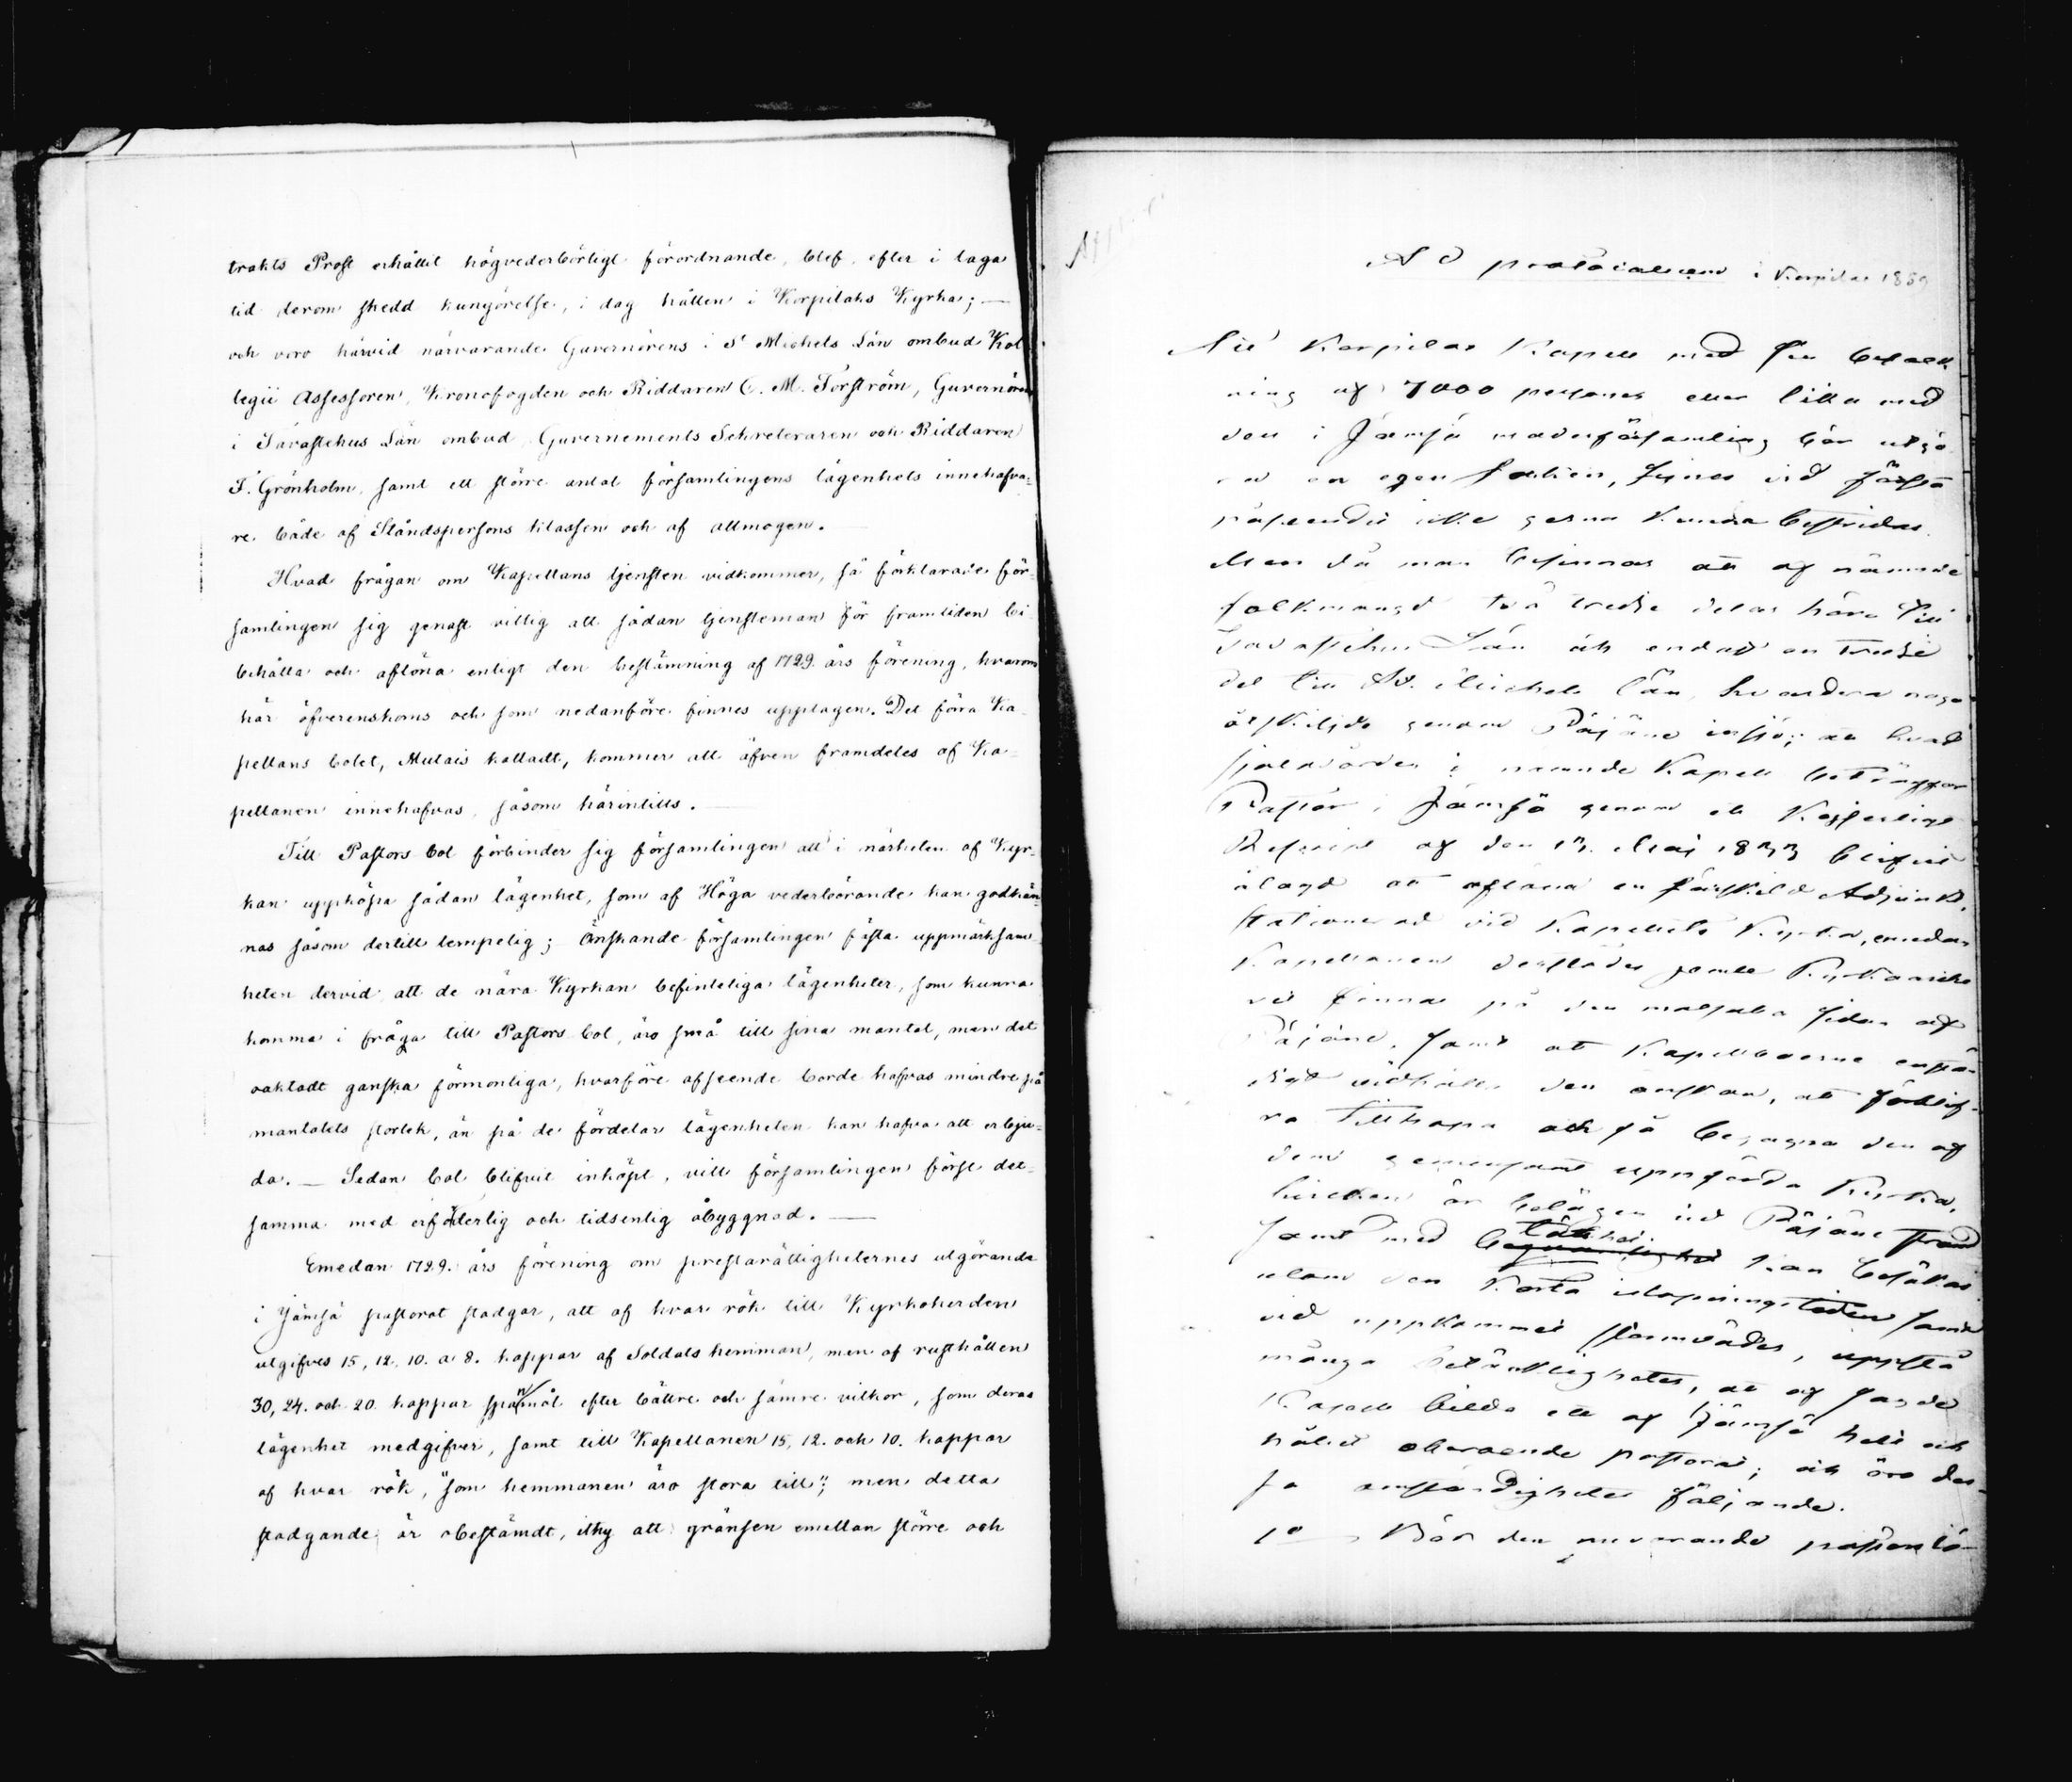 trakts Prost erhållit högvederbörligt förordnande, blef, efter i laga
tid derom skedd kungörelse, i dag hållen i Korpilaks Kyrka; —
och voro härvid närvarande Guvernörens i S:t Michels Län ombud Kol
legii Assessoren, Kronofogden och Riddaren C. M. Forsström, Guvernörens
i Tavastehus Län ombud Guvernements Sekreteraren och Riddaren
F. Grönholm, samt ett större antal församlingens lägenhets innehafva-
re både af Ståndspersons klassen och af allmogen. —
Hvad frågan om Kapellans tjensten vidkommer, så förklarade för-
samlingen sig genast villig att sådan tjensteman för framtiden bi
behålla och aflöna enligt den bestämning af 1729 års förening, hvarom
här öfverenskoms och som nedanföre finnes upptagen. Det förra Ka-
pellans bolet, Mutais kalladt, kommer att äfven framdeles af Ka-
pellanen innehafvas, såsom härintills. —
Till Pastors bol förbinder sig församlingen att i närheten af Kyr-
kan uppköpa sådan lägenhet, som af Höga vederbörande kan godkän-
nas såsom dertill tempelig; Önskande församlingen fästa uppmärksam-
heten dervid att de nära Kyrkan befinteliga lägenheter, som kunna
komma i fråga till Pastors bol, äro små till sina mantal, men det
oaktadt ganska förmonliga, hvarföre afseende borde hafvas mindre på
mantalets storlek, än på de fördelar lägenheten kan hafva att erbju-
da. — Sedan bol blifvit inköpt, vill församlingen förse det-
samma med erforderlig och tidsenlig åbyggnad. —
Emedan 1729. års förening om prestarättigheternes utgörande
i Jämsä pastorat stadgar, att af hvar rök till Kyrkoherden
utgifves 15, 12, 10. a 8. kappar af Soldats hemman, men af rusthållen
30, 24. och 20 kappar spanmål efter bättre och sämre vilkor, som deras
lägenhet medgifver, samt till Kapellanen 15, 12. och 10. kappar
af hvar rök, "som hemmanen äro stora till"; men detta
stadgande är obestämdt, ithy att gränsen emellan större och
Ad protocollum i Korpilax 1859
Att Korpilax Kapell med sin befolk
ning af 7000 personer eller lika med
den i Jämsä moderförsamling bör utgö
ra en egen , synes vid första
påseendet icke gerna kunna bestridas.
Men då man besinnar att af nämnde
folkmängd två tredje delar höra till
Tavastehus Län och endast en tredje
del till S:t Michels län, hvardera noga
åtskiljde genom Päijäne insjö; att hvad
själavården i nämnde Kapell beträffar
Pastor i Jämsä genom ett Kejserligt
Rescript af den Maj 1833 blifvit
ålagd att aflöna en särskild Adjunkt,
stationerad vid Kapellets Kyrka, emedan
Kapellanen derstädes jemte
vis finnas på den motsatta sidan af
Päijäne, samt att Kapellboerne enstän
digt vidhålla den önskan, att förblif-
va tillhopa och få begagna den af
dem gemensamt uppförda Kyrka,
hvilken är belägen vid Päijäne strand
samt med lätthet kan besökas
utom den korta islopningstiden samt
vid uppkommet stormväder, uppstå
många betänkligheter, att af sagde
Kapell bilda ett af Jämsä helt och
hållet oberoende pastorat; och äro des-
sa omständigheter följande.
1:o Bör den nuvarande